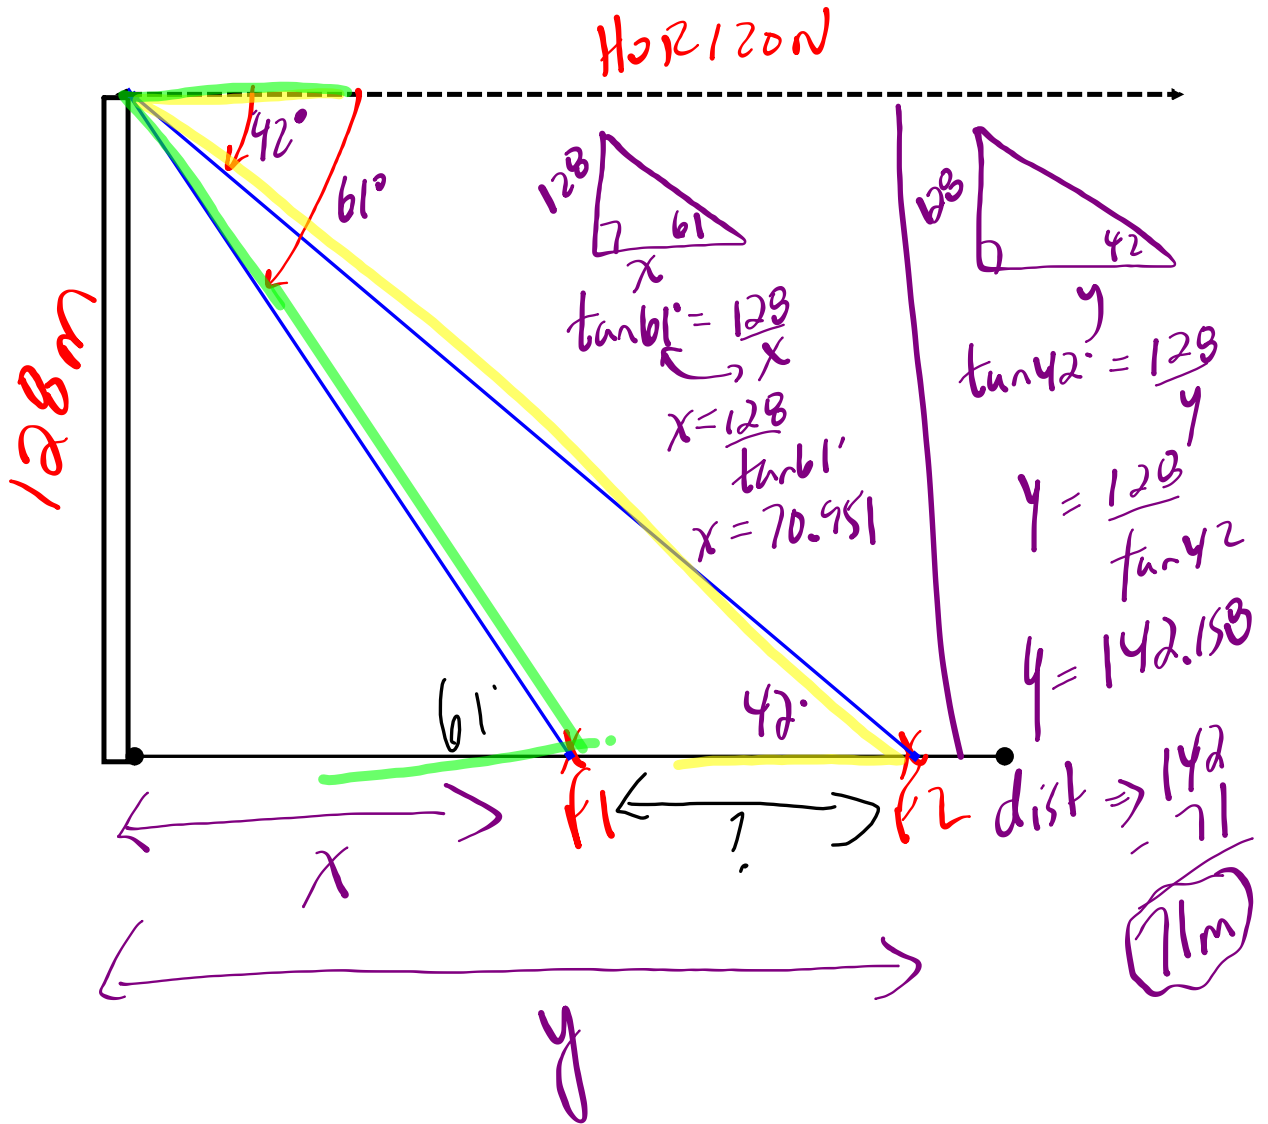 HORIZON
42°
61°
128m
128
61
x
tan61° = 128/x
x = 128/tan61°
x = 70.951
128
42
y
tan42° = 128/y
y = 128/tan42
y = 142.158
61°
42°
F1
?
F2
x
y
dist ⇒ 142
- 71
71m